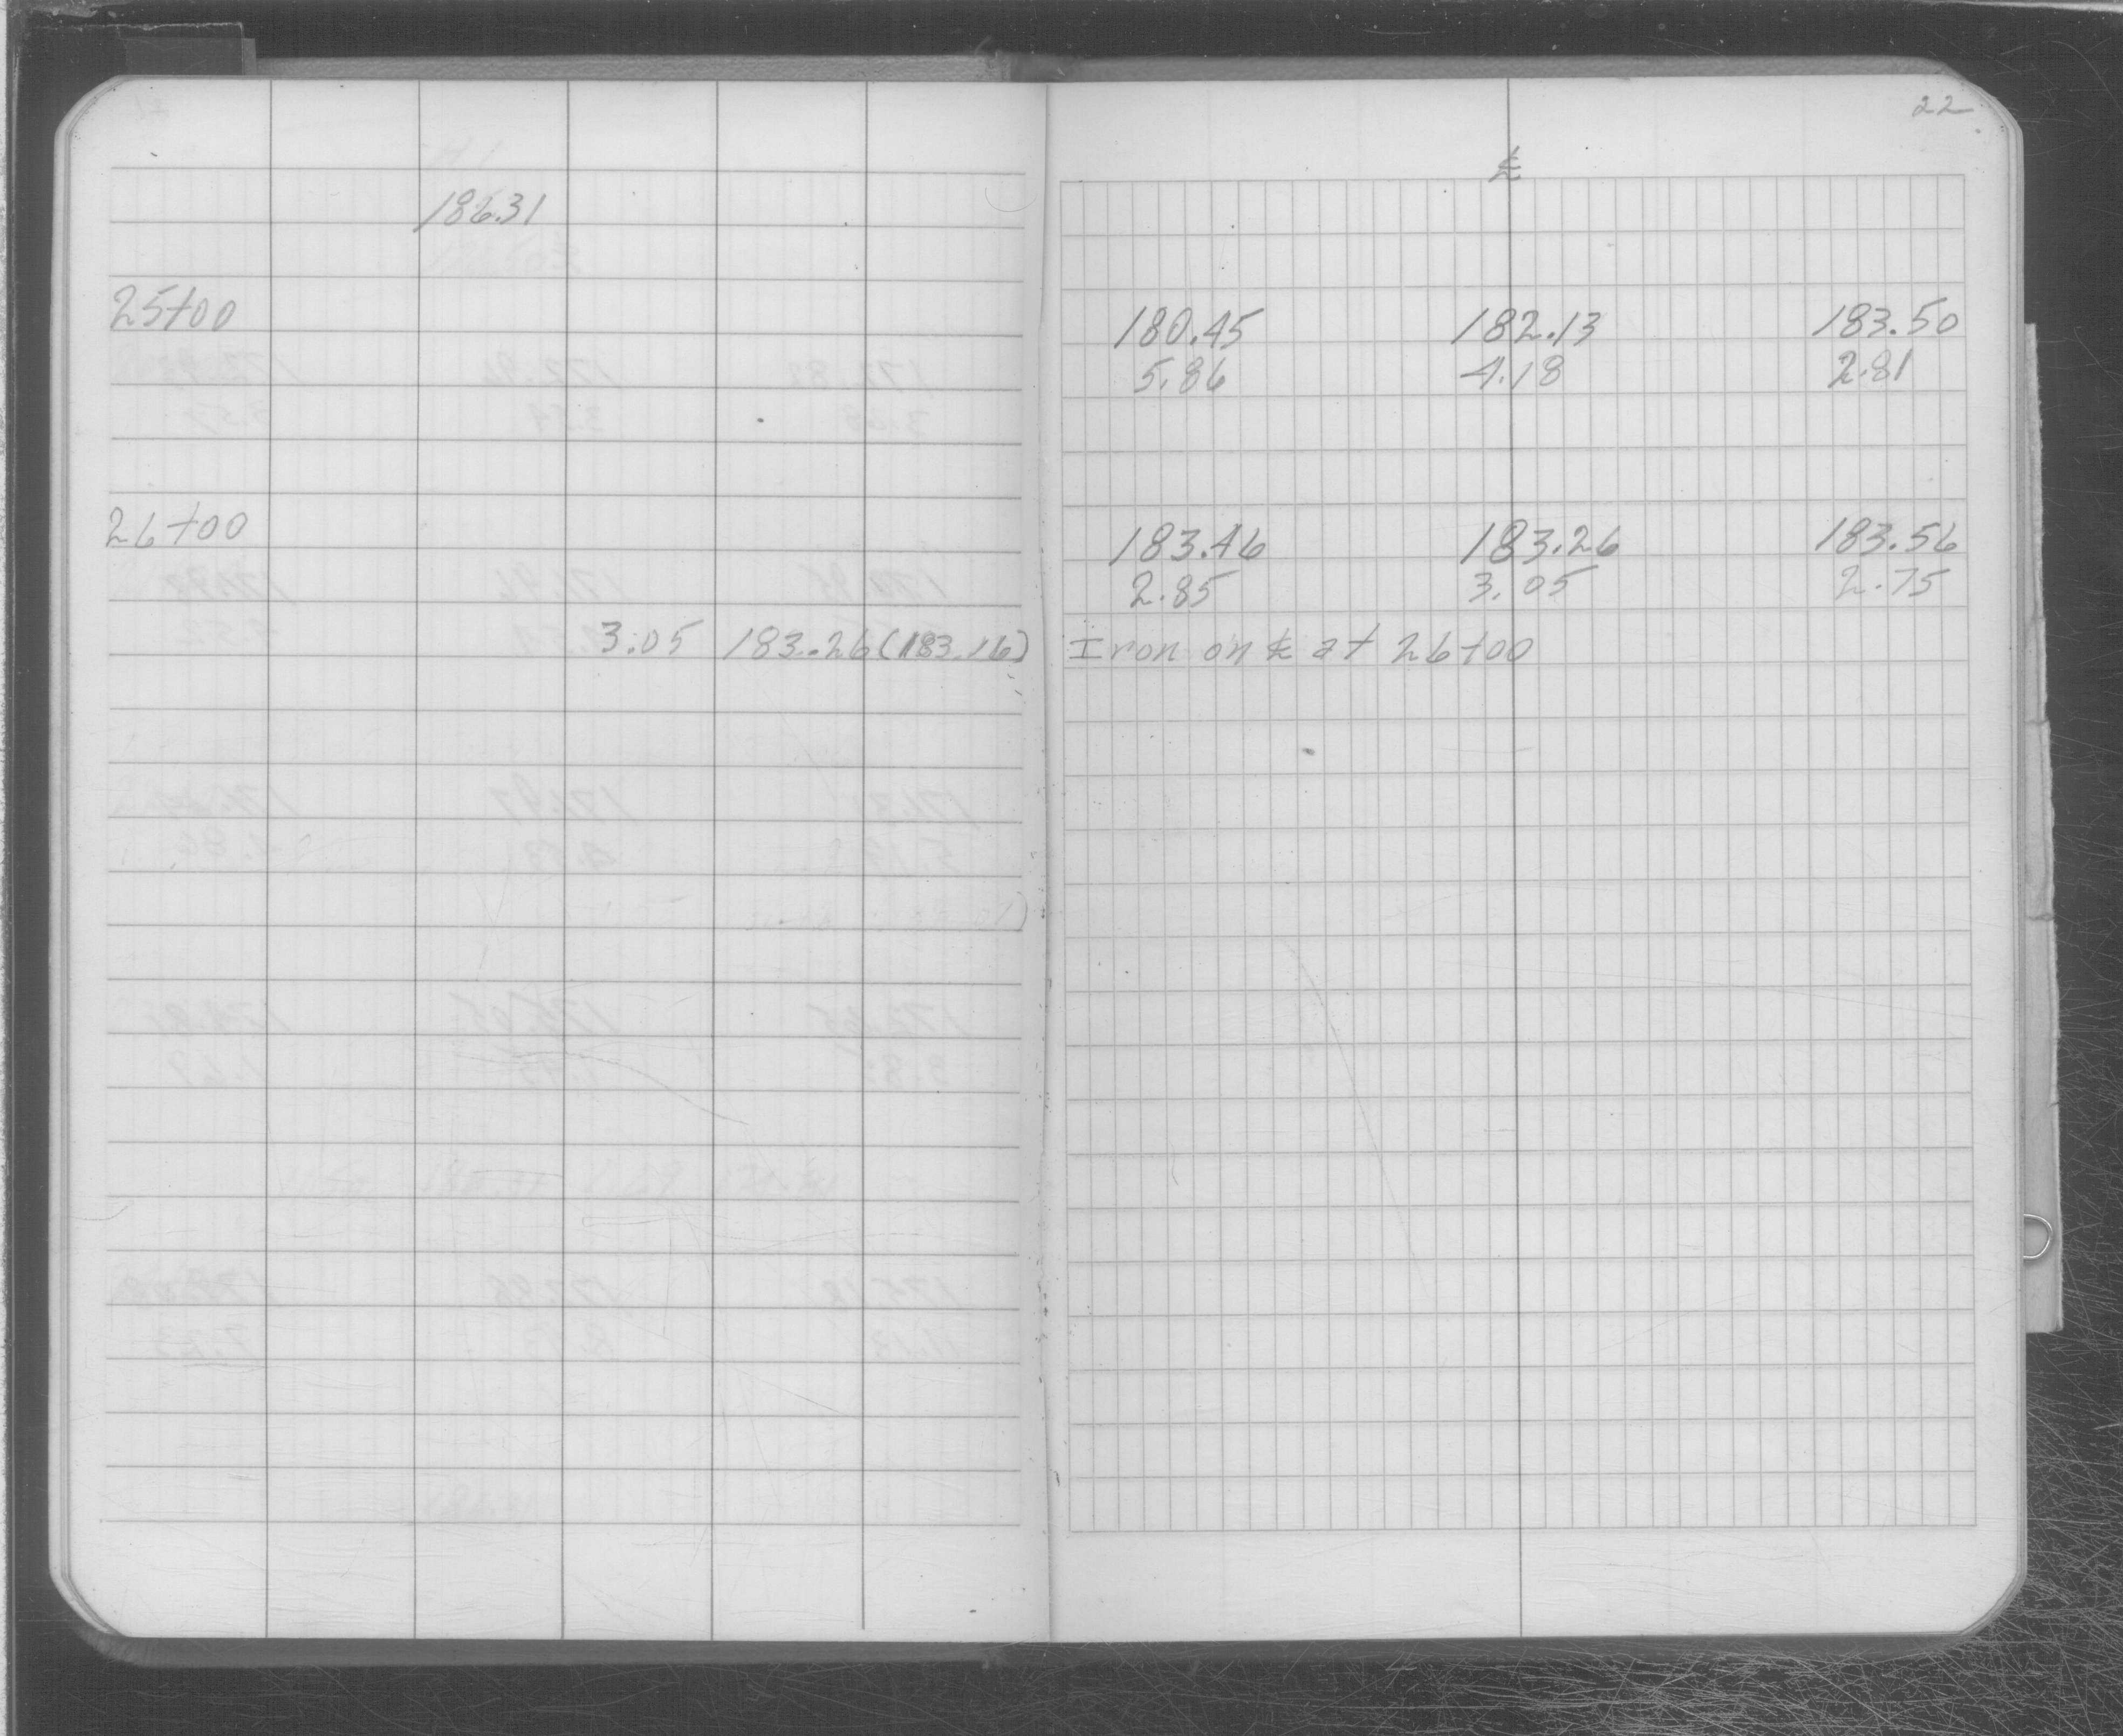 22
℄
186.31
25+00 180.45 182.13 183.50
5.86 4.18 2.81
26+00 183.46 183.26 183.56
2.85 3.05 2.75
3.05 183.26 (183.16) Iron on ℄ at 26+00